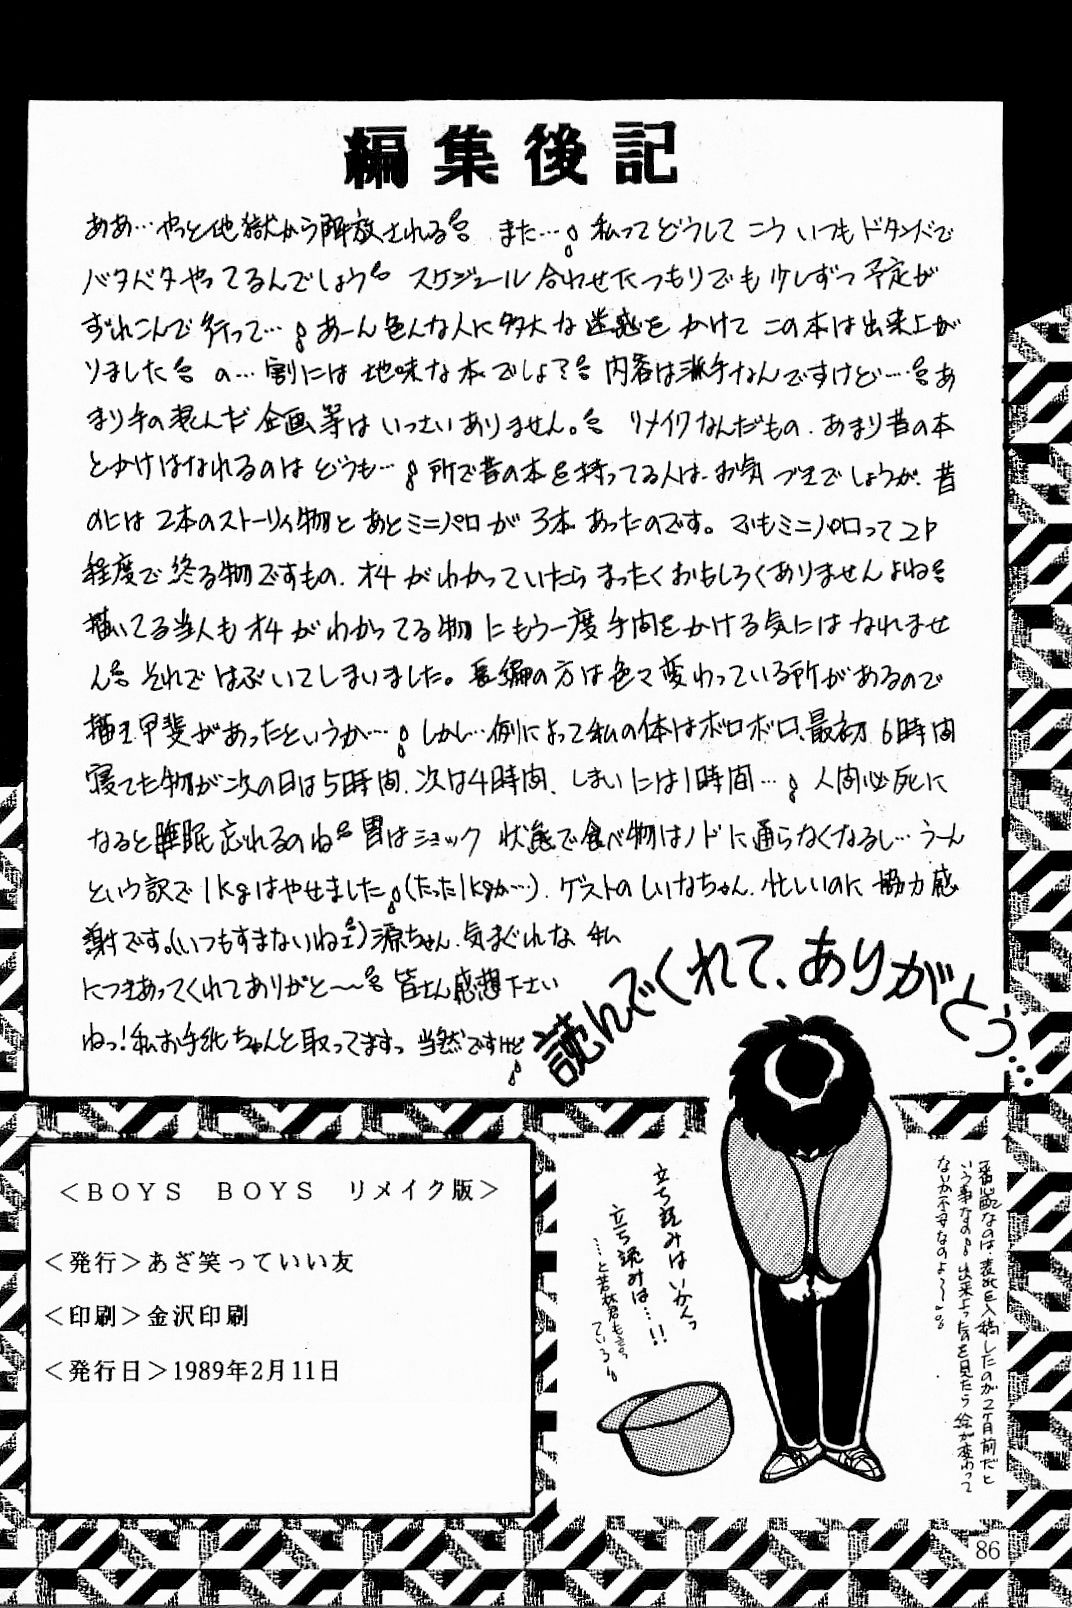 編集後記
ああ…やっと地獄から解放される また…私ってどうしてこういつもドタンバで
バタバタやってるんでしょう スケジュール合わせたつもりでも少しずつ予定が
ずれこんで行って…あーん色んな人に多大な迷惑をかけてこの本は出来上が
りました の…割には地味な本でしょ？内容は派手なんですけど…あ
まり手の混んだ企画等はいっさいありません。リメイクなんだもの、あまり昔の本
とかけはなれるのはどうも…所で昔の本を持ってる人は、お気づきでしょうが、昔
のには2本のストーリィ物とあとミニパロが3本あったのです。でもミニパロって2P
程度で終る物ですもの、オチがわかっていたらまったくおもしろくありませんよね
描いてる当人もオチがわかってる物にもう一度手間をかける気にはなれませ
ん それではぶいてしまいました。長編の方は色々変わっている所があるので
描く甲斐があったというか…しかし…例によって私の体はボロボロ、最初6時間
寝てた物が次の日は5時間、次は4時間、しまいには1時間…人間必死に
なると睡眠忘れるのね 胃はショック状態で食べ物はノドに通らなくなるし…うーん
という訳で1kgはやせました(たった1kgか…)、ゲストのしいなちゃん、忙しいのに協力感
謝です。(いつもすまないねェ)源ちゃん、気まぐれな私
につきあってくれてありがと〜〜 皆さん感想下さい
ねっ！私お手紙ちゃんと取ってますっ 当然ですけど
読んでくれて、ありがとう…
＜ＢＯＹＳ　ＢＯＹＳ　リメイク版＞
＜発行＞あざ笑っていい友
＜印刷＞金沢印刷
＜発行日＞1989年2月11日
立ち読みはいかんっ
立ち読みは…!!
…と若林君も言っ
ている
一番心配なのは、表紙を入稿したのが2ヶ月前だと
いう事なの 出来上った本を見たら絵が変わって
ないか不安なのよ〜
86